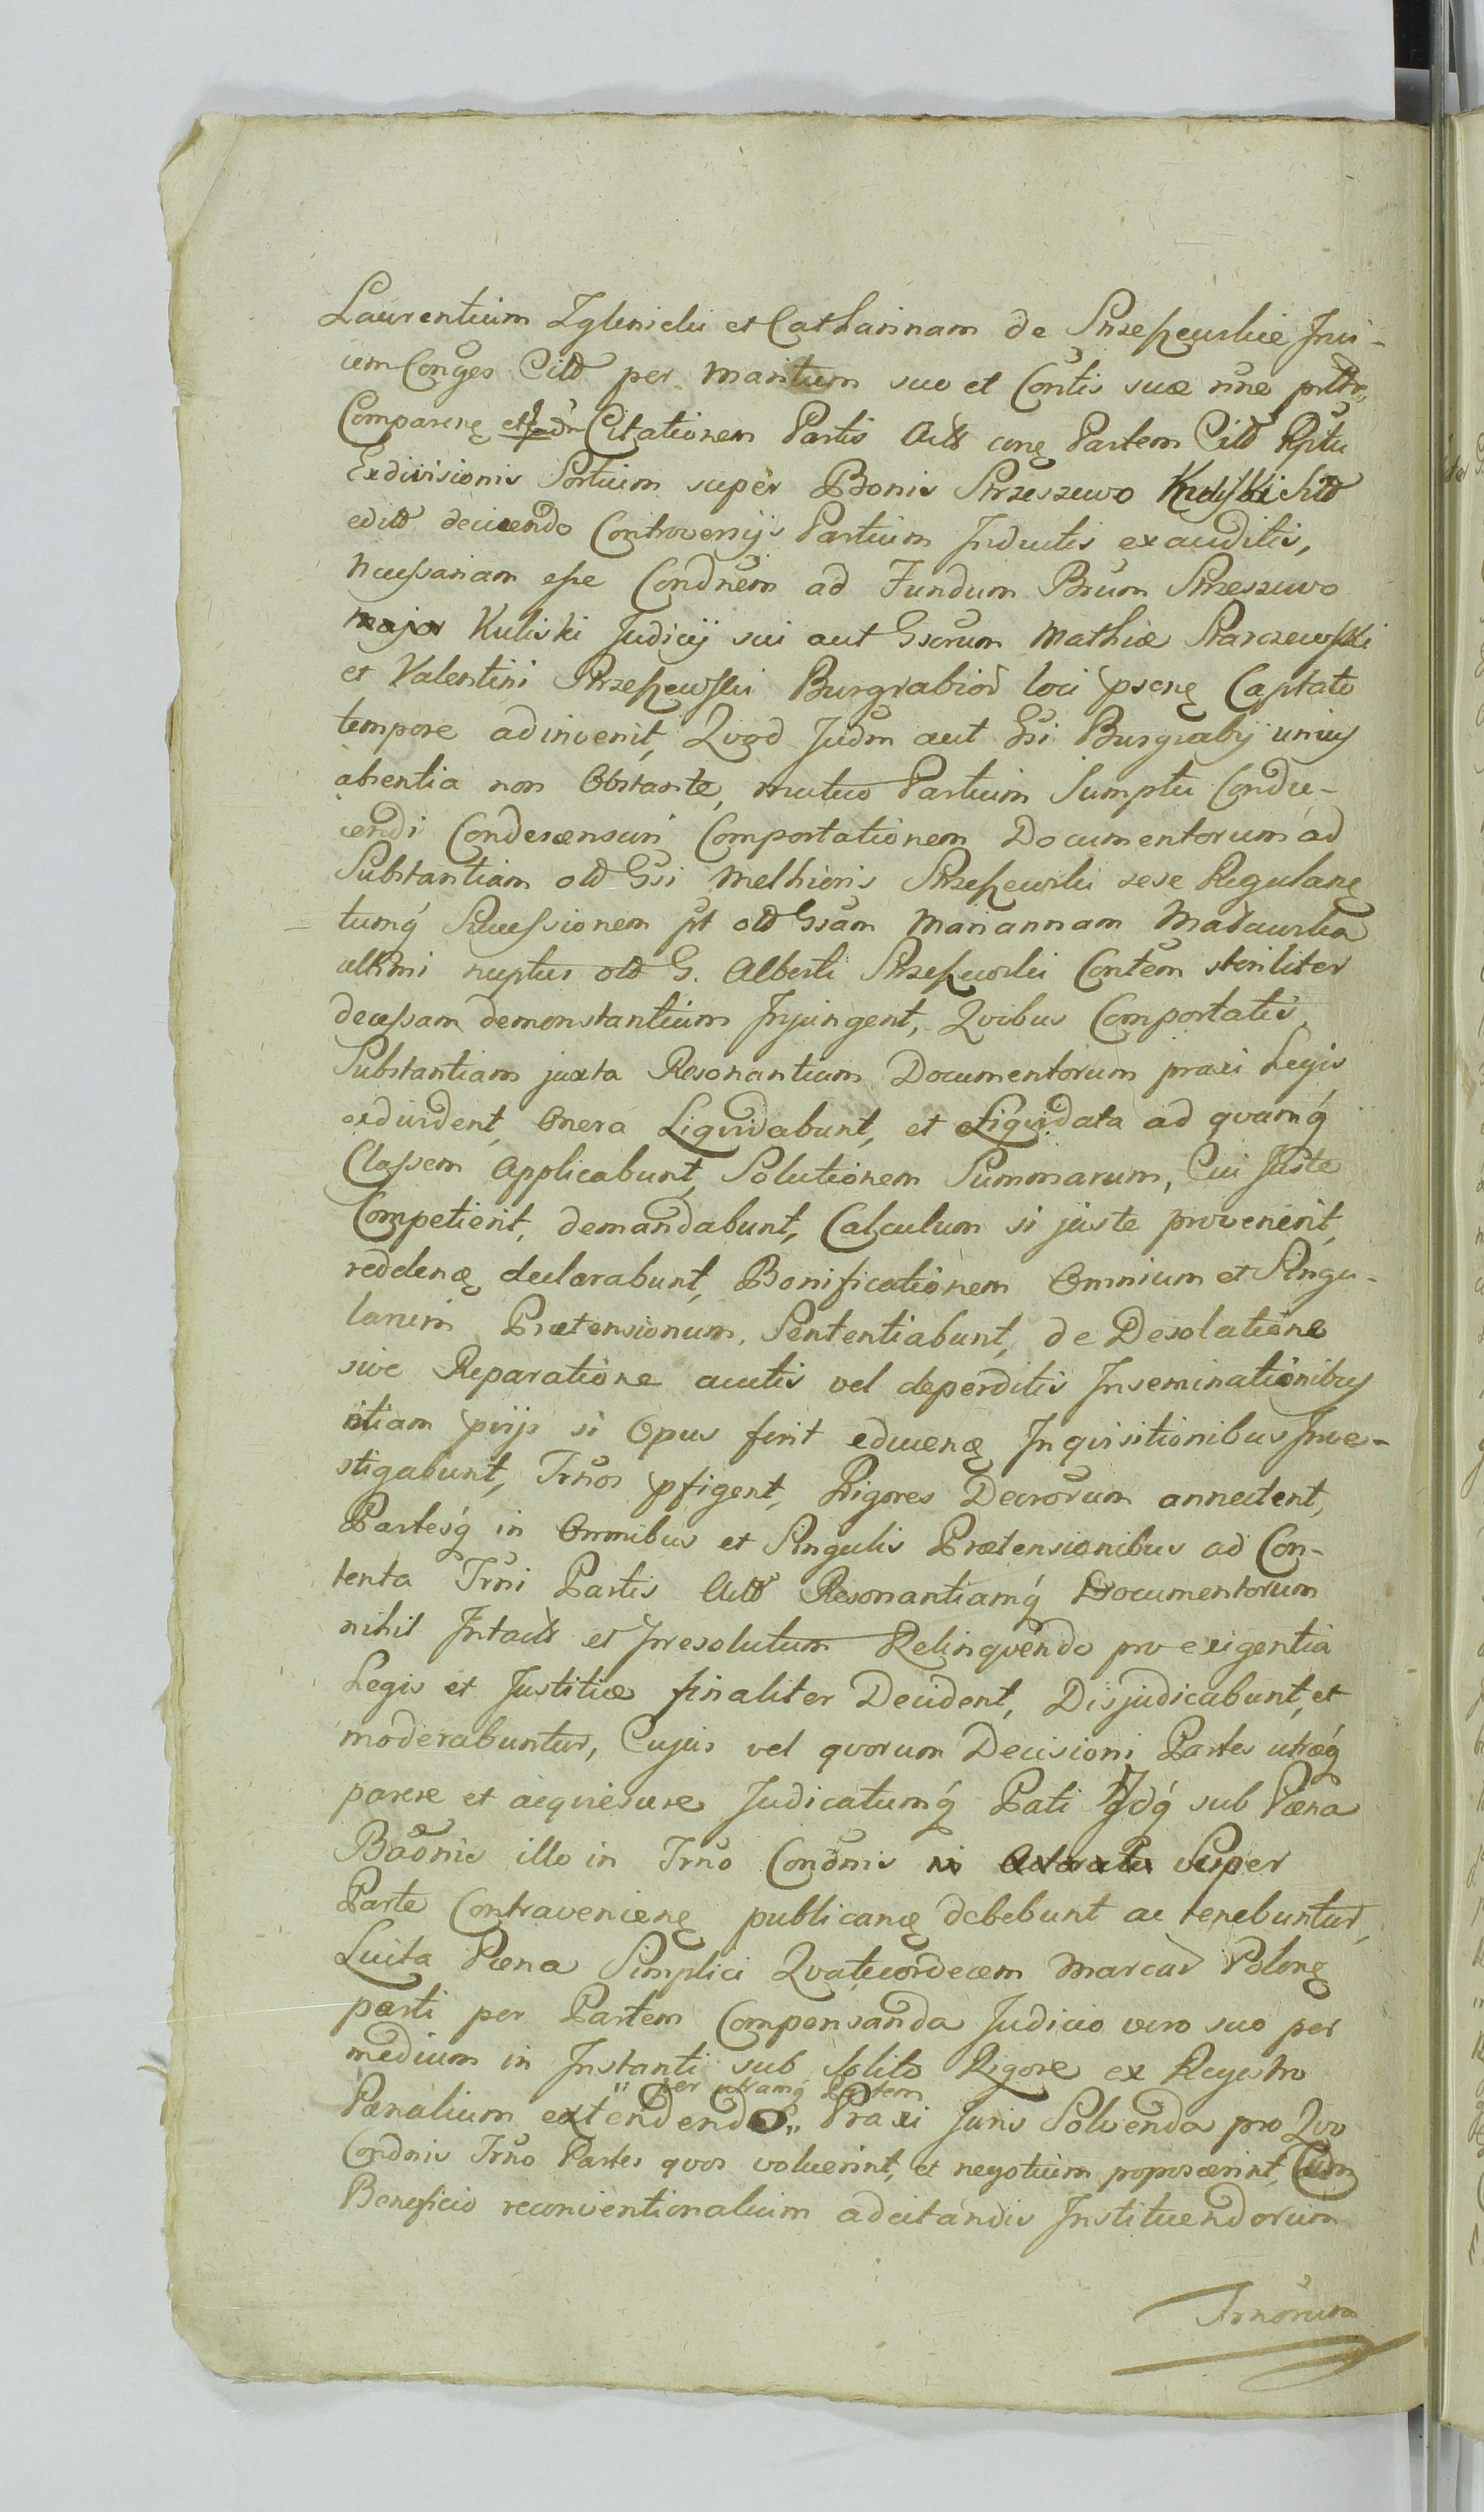 Laurentium Zglenicki et Catharinam de Strzeszewskie Invi-
cem Conges Citõ per Maritum suo et Contis suæ nne
Comparenę Citationem Partis Actõ conę Partem Citõ Rptu
Exdivisionis Sortium super Bonis Strzeszewo Kulyski
editõ deciendo Controversijs Partium Inductis exauditis,
Necessariam esse Condnem ad Fundum Brum Strzeszewo
Kuliski Judicij sui aut Gsorum Mathiæ Starczewski
et Valentini Strzeszewski Burgrabior loci psenę Captato
tempore adinvenit, Qvod Judm aut Gsi Burgrabij unius
absentia non Obstante, mutuo Partium Sumptu Condu-
cendi Condescensuri Comportationem Documentorum ad
Substantiam olõ Gsi Melhioris Strzeszewski sese Regulanę
tumq́ Successionem pt olõ Gsam Mariannam Madaewska
ultimi nuptus olõ G. Alberti Strzeszewski Contem steriliter
decessam demonstantium Injungent, Qvibus Comportatis
Substantiam juxta Resonantiam Documentorum praxi Legis
exdivident, Onera Liqvidabunt, et Liqvidata ad qvamq́
Classem Applicabunt, Solutionem Summarum, Cui Juste
Competierit, demandabunt, Calculum si juste provenerit,
reddenę declarabunt, Bonificationem Omnium et Singu-
larum Prætensionum, Sententiabunt, de Desolatione
sive Reparatione auctis vel deperditis Inseminationibus
itiam prijs si Opus fuerit educenę Inqvisitionibus Inve-
stigabunt, Trnos pfigent, Rigores Decrorum annectent,
Partesq́ in Omnibus et Singulis Prætensionibus ad Con-
tenta Trni Partis Actõ Resonantiamq́ Documentorum
nihil Intactõ et Irresolutum Relinqvendo pro exigentia
Legis et Justitiæ finaliter Decident, Disjudicabunt, et
moderabuntur, Cujus vel qvorum Decisioni Partes utræq́
parere et acqviescere Judicatumq́ Pati Idq́ sub Pæna
Baõnis illo in Trno Condnis super
Parte Contravenienę publicanę debebunt ac tenebuntur,
Luita Pæna Simplici Qvatuordecem Marcar Polonę
parti per Partem Compensanda Judicio vero suo per
medium in Instanti sub solito Rigore ex Regestro
per utramq́ Partem
Pænalium extendendo Praxi Juris Solvenda pro Qvo
Condnis Trno Partes qvos voluerint, et negotium poposcerint, Cum
Beneficio reconventionalium adcitandis Instituendorum
Trnorum